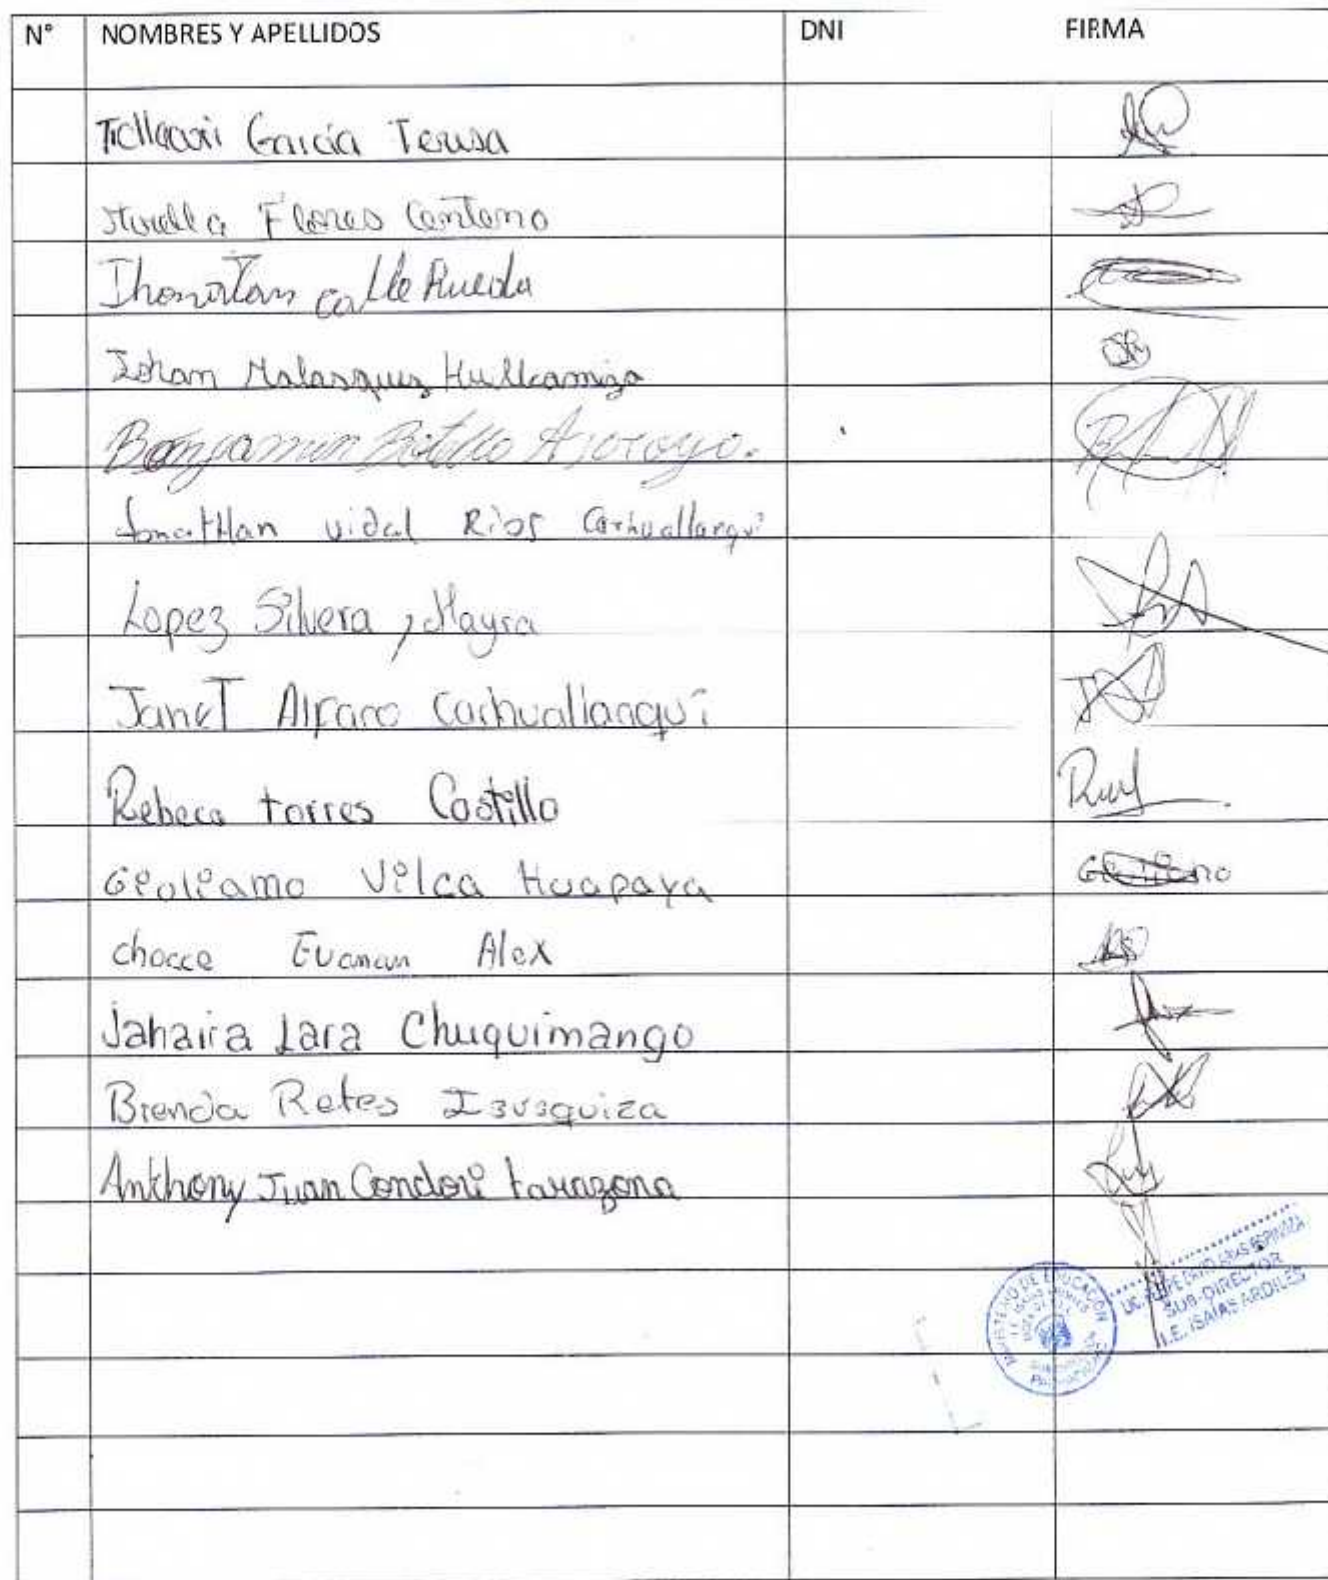 N° NOMBRES Y APELLIDOS DNI FIRMA
García Teresa
Flores Centeno
Jhonatan calle Rueda
Johan Malasquez Hullcamiza
Benjamin Botillo Arroyo.
Jonathan vidal Rios Carhuallanqui
Lopez Silvera, Mayra
Janet Alfaro Carhuallanqui
Rebeca torres Castillo
Vilca Huapaya
chocce Evanan Alex
Jahaira Lara Chuquimango
Brenda Retes Isusquiza
Ankhony Juan Condori tarazona
MINISTERIO DE EDUCACION
SUB-DIRECTOR
I.E. ISAIAS ARDILES